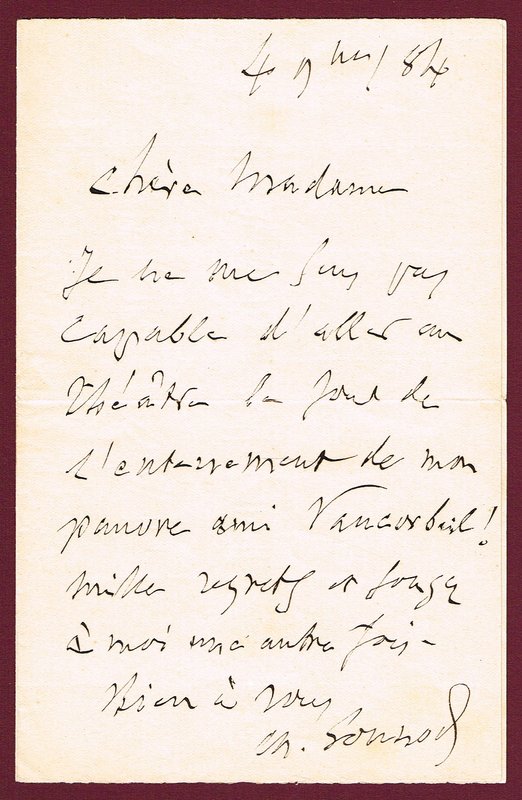 4 9bre / 84
Chère Madame
Je ne me sens pas
capable d'aller au
théâtre le jour de
l'enterrement de mon
pauvre ami Vaucorbeil!
mille regrets et songez
à moi une autre fois -
Bien à vous
Ch. Gounod